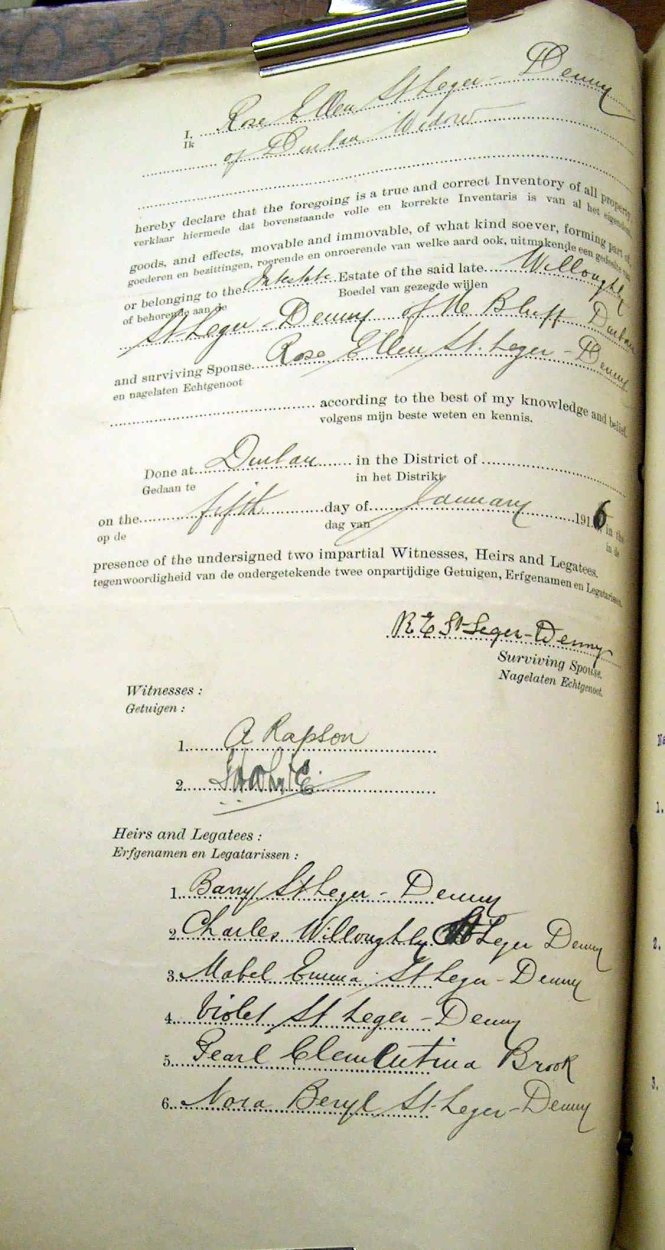 I, Rose Ellen St Leger - Denny
Ik
of Durban Widow
hereby declare that the foregoing is a true and correct Inventory of all property
verklaar hiermede dat bovenstaande volle en korrekte Inventaris is van al het eigendom
goods, and effects, movable and immovable, of what kind soever, forming part of
goederen en bezittingen, roerende en onroerende van welke aard ook, uitmakende een gedeelte van
or belonging to the Intestate Estate of the said late Willoughby
of behorende aan de Boedel van gezegde wijlen
St. Leger - Denny of the Bluff Durban
and surviving Spouse Rose Ellen St. Leger - Denny
en nagelaten Echtgenoot
according to the best of my knowledge and belief.
volgens mijn beste weten en kennis.
Done at Durban in the District of
Gedaan te in het Distrikt
on the fifth day of January 1916, in the
op de dag van in de
presence of the undersigned two impartial Witnesses, Heirs and Legatees.
tegenwoordigheid van de ondergetekende twee onpartijdige Getuigen, Erfgenamen en Legatarissen.
R E St-Leger-Denny
Surviving Spouse.
Nagelaten Echtgenoot.
Witnesses :
Getuigen :
1. A Rapson
2.
Heirs and Legatees :
Erfgenamen en Legatarissen :
1. Barry St Leger - Denny
2. Charles Willoughby St Leger Denny
3. Mabel Emma St Leger - Denny
4. Violet St Leger - Denny
5. Pearl Clementina Brook
6. Nora Beryl St-Leger-Denny
1.
2.
3.